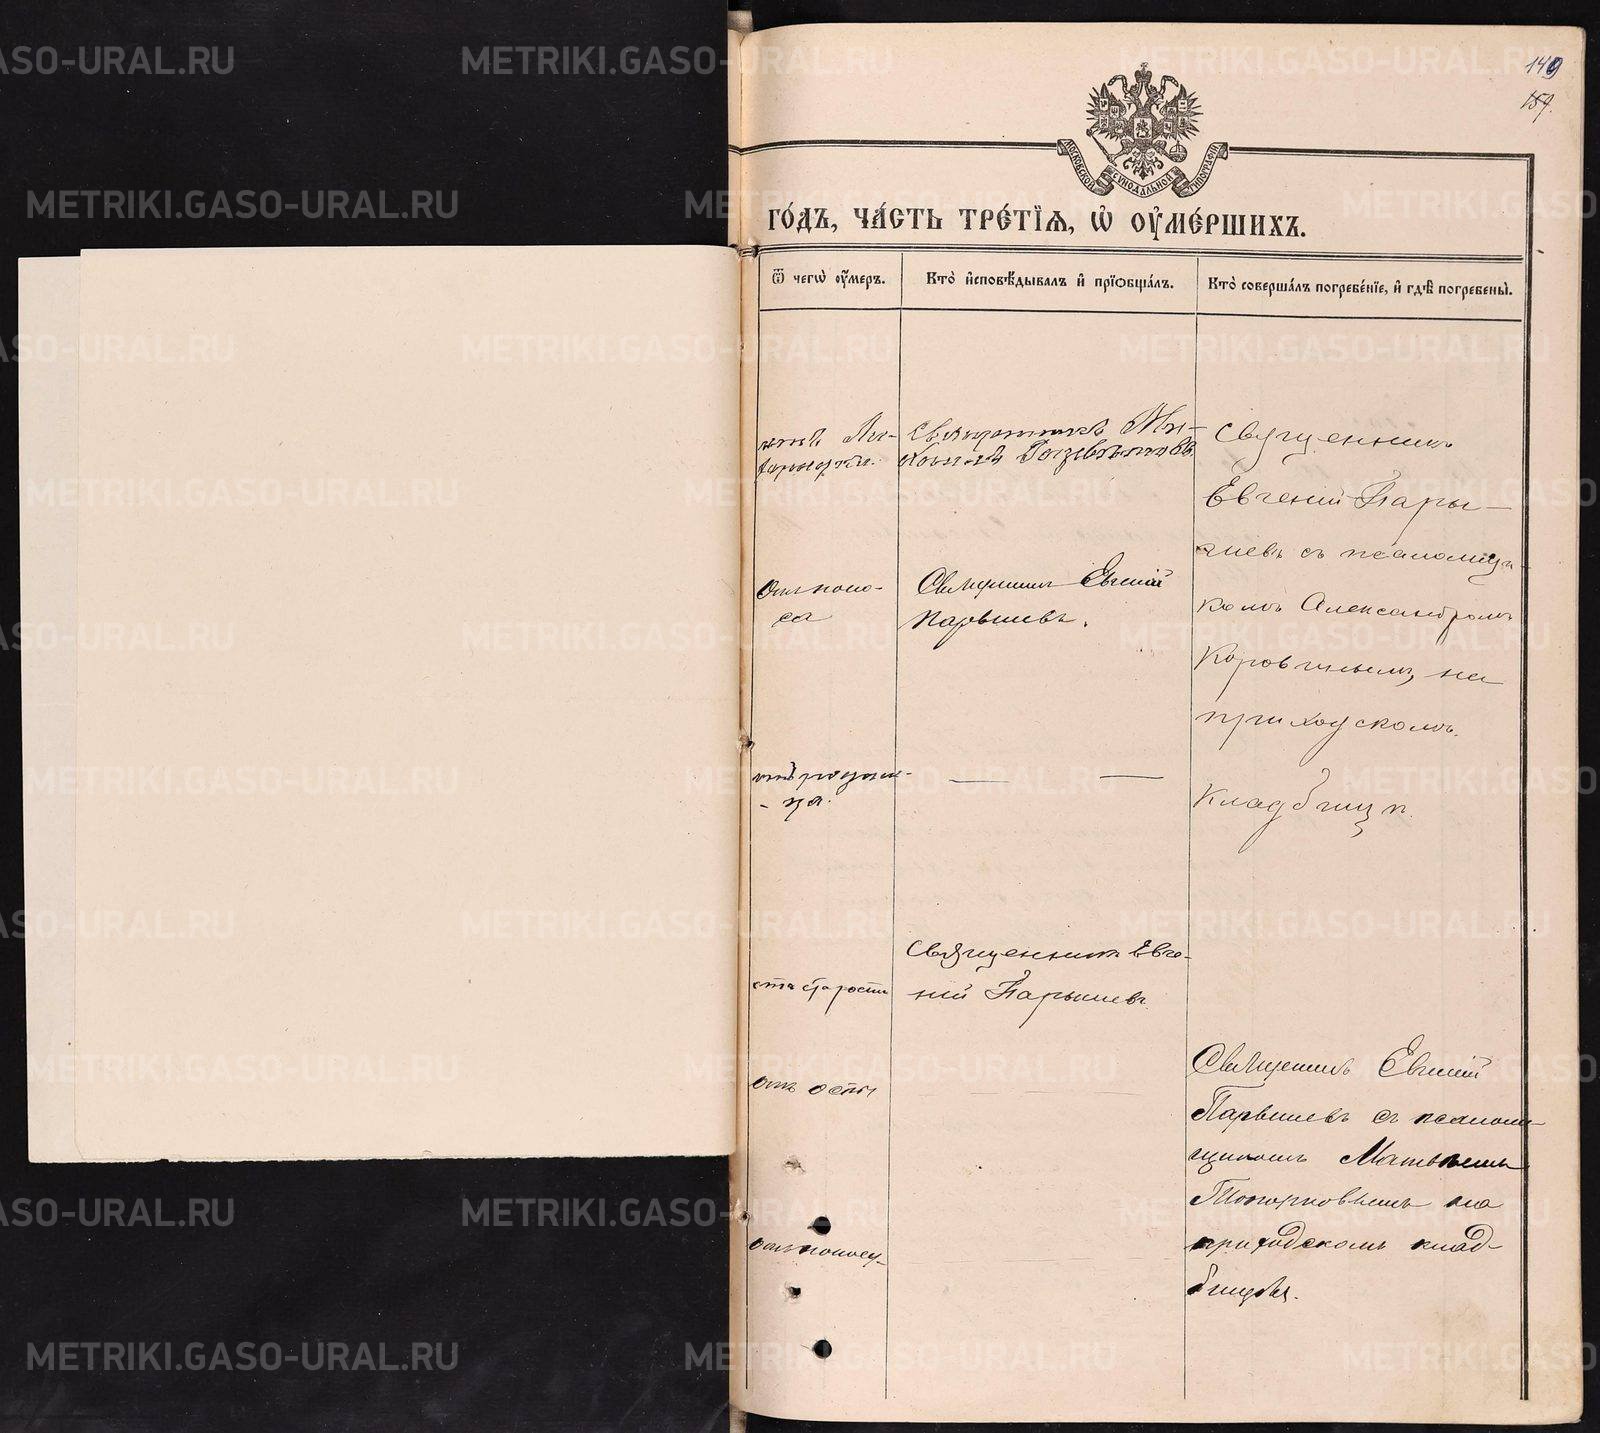 149
159.
МОСКОВСКОЙ СѴНОДАЛЬНОЙ ТИПОГРАФІИ
ГО́ДЪ, ЧА́СТЬ ТРЕ́ТІѦ, Ѡ҆ ОУ҆МЕ́РШИХЪ.
Ѿ чегѡ̀ оу҆́меръ.
Кто̀ и҆сповѣ́дывалъ и҆ прїѡбща́лъ.
Кто̀ соверша́лъ погребе́нїе, и҆ гдѣ̀ погребены̀.
Священникъ Ми-
Священникъ
Евгеній Пары-
шевъ съ псаломщи-
комъ Александромъ
Коровинымъ, на
приходскомъ
Кладбищѣ.
Отъ поно-
са
Священникъ Евгеній
Парышевъ.
— —
отъ старости
Священникъ Евге-
ній Парышевъ
отъ оспы
Священникъ Евгеній
Парышевъ съ псалом-
щикомъ Матвѣемъ
Топорковымъ на
приходскомъ клад-
бищѣ.
отъ поносу
METRIKI.GASO-URAL.RU